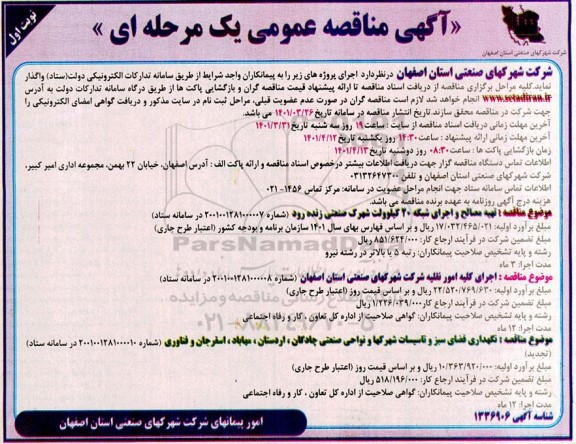 نوبت اول
«آگهی مناقصه عمومی یک مرحله ای»
شرکت شهرکهای صنعتی استان اصفهان
شرکت شهرکهای صنعتی استان اصفهان درنظردارد اجرای پروژه های زیر را به پیمانکاران واجد شرایط از طریق سامانه تدارکات الکترونیکی دولت(ستاد) واگذار
نماید.کلیه مراحل برگزاری مناقصه از دریافت اسناد مناقصه تا ارائه پیشنهاد قیمت مناقصه گران و بازگشایی پاکت ها از طریق درگاه سامانه تدارکات دولت به آدرس
www.setadiran.ir انجام خواهد شد لازم است مناقصه گران در صورت عدم عضویت قبلی، مراحل ثبت نام در سایت مذکور و دریافت گواهی امضای الکترونیکی را
جهت شرکت در مناقصه محقق سازند.تاریخ انتشار مناقصه در سامانه تاریخ ۱۴۰۱/۰۳/۲۶ می باشد.
آخرین مهلت زمانی دریافت اسناد مناقصه از سایت : ساعت ۱۹ روز سه شنبه تاریخ ۱۴۰۱/۳/۳۱
آخرین مهلت زمانی ارائه پیشنهاد : ساعت ۱۴:۳۰ روز یکشنبه تاریخ ۱۴۰۱/۴/۱۲
زمان بازگشایی پاکت ها : ساعت ۰۸:۳۰ روز دوشنبه تاریخ ۱۴۰۱/۴/۱۳
اطلاعات تماس دستگاه مناقصه گزار جهت دریافت اطلاعات بیشتر درخصوص اسناد مناقصه و ارائه پاکت الف : آدرس اصفهان، خیابان ۲۲ بهمن، مجموعه اداری امیر کبیر،
شرکت شهرکهای صنعتی استان اصفهان و تلفن ۰۳۱۳۲۶۴۷۳۰۰
اطلاعات تماس سامانه ستاد جهت انجام مراحل عضویت در سامانه: مرکز تماس ۱۴۵۶- ۰۲۱
هزینه درج آگهی روزنامه به عهده برنده مناقصه می باشد.
موضوع مناقصه : تهیه مصالح و اجرای شبکه ۲۰ کیلوولت شهرک صنعتی زنده رود (شماره ۲۰۰۱۰۰۱۲۸۱۰۰۰۰۰۷ در سامانه ستاد)
مبلغ برآورد اولیه: ۱۷/۰۳۲/۴۶۵/۰۲۱ ریال و بر اساس فهارس بهای سال ۱۴۰۱ سازمان برنامه و بودجه کشور (اعتبار طرح جاری)
مبلغ تضمین شرکت در فرآیند ارجاع کار: ۸۵۱/۶۲۴/۰۰۰ ریال
رشته و پایه تشخیص صلاحیت پیمانکاران: رتبه ۵ یا بالاتر در رشته نیرو
مدت اجرا: ۳ ماه
موضوع مناقصه : اجرای کلیه امور نقلیه شرکت شهرکهای صنعتی استان اصفهان (شماره ۲۰۰۱۰۰۱۲۸۱۰۰۰۰۰۸ در سامانه ستاد)
مبلغ برآورد اولیه: ۲۲/۵۲۰/۷۶۹/۶۳۰ ریال و بر اساس قیمت روز (اعتبار طرح جاری)
مبلغ تضمین شرکت در فرآیند ارجاع کار: ۱/۱۲۶/۰۳۹/۰۰۰ ریال
رشته و پایه تشخیص صلاحیت پیمانکاران: گواهی صلاحیت از اداره کل تعاون ، کار و رفاه اجتماعی
مدت اجرا: ۱۲ ماه
موضوع مناقصه : نگهداری فضای سبز و تاسیسات شهرکها و نواحی صنعتی چادگان ، اردستان ، مهاباد ، اسفرجان و فناوری (شماره ۲۰۰۱۰۰۱۲۸۱۰۰۰۰۱۰ در سامانه ستاد)
(تجدید)
مبلغ برآورد اولیه: ۱۰/۳۶۳/۹۲۰/۰۰۰ ریال و بر اساس قیمت روز (اعتبار طرح جاری)
مبلغ تضمین شرکت در فرآیند ارجاع کار: ۵۱۸/۱۹۶/۰۰۰ ریال
رشته و پایه تشخیص صلاحیت پیمانکاران: گواهی صلاحیت از اداره کل تعاون ، کار و رفاه اجتماعی
مدت اجرا: ۱۲ ماه
شناسه آگهی ۱۳۳۶۹۰۶
امور پیمانهای شرکت شهرکهای صنعتی استان اصفهان
ParsNamadData
۰۲۱-۸۸۳۴۹۶۷۰-۵